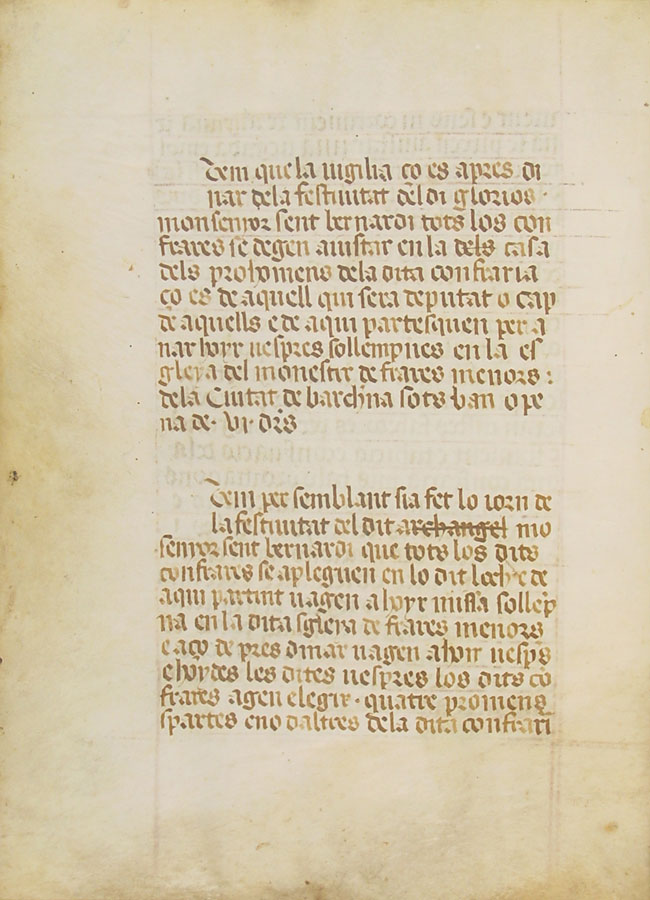 Item que la uigilia ço es apres di
nar dela festiuitat del di glorios
monsenyor sent bernardi tots los con
frares se degen aiustar en la dels casa
dels prohomens dela dita confraria
ço es de aquell qui sera deputat o cap
de aquells e de aqui partesquen per a
nar hoyr uespres sollempnes en la es
gleya del monestir de frares menors :
dela Ciutat de barchna sots ban o pe
na de · vi · drs
Item per semblant sia fet lo iorn de
la festiuitat del dit archangel mo
senyor sent bernardi que tots los dits
confrares se apleguen en lo dit loch e de
aqui partint uagen a hoyr missa sollep
na en la dita sgleya de frares menors
e aço de pres dinar uagen a hoir uesps
e hoydes les dites uespres los dits co
frares agen elegir · quatre promens
spartes eno daltres dela dita confrari